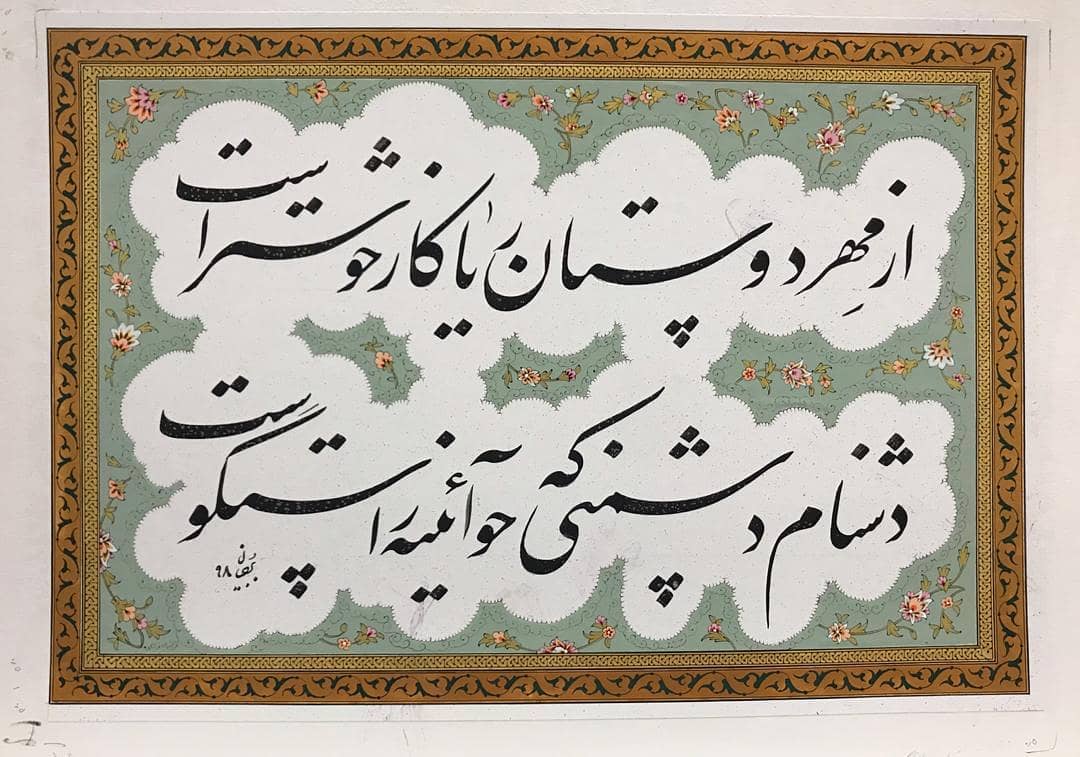 از مهِر دوستان ریاکار خوشتر است
دشنام دشمنی که چو آئینه راستگوست
۹۸